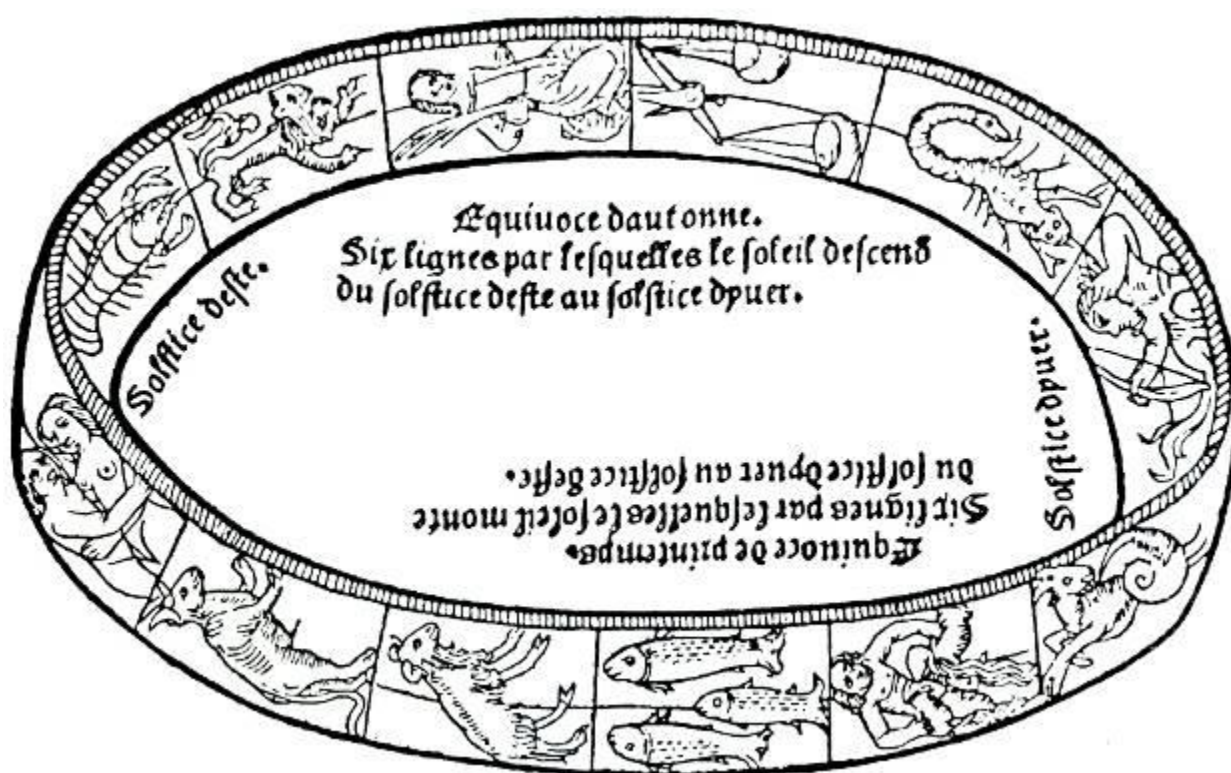 Equinoce dautonne.
Six signes par lesquelles le soleil descend
du solstice deste au solstice dyuer.
Solstice deste.
Solstice dyuer.
Equinoce de printemps.
Six signes par lesquelles le soleil monte
du solstice dyuer au solstice deste.